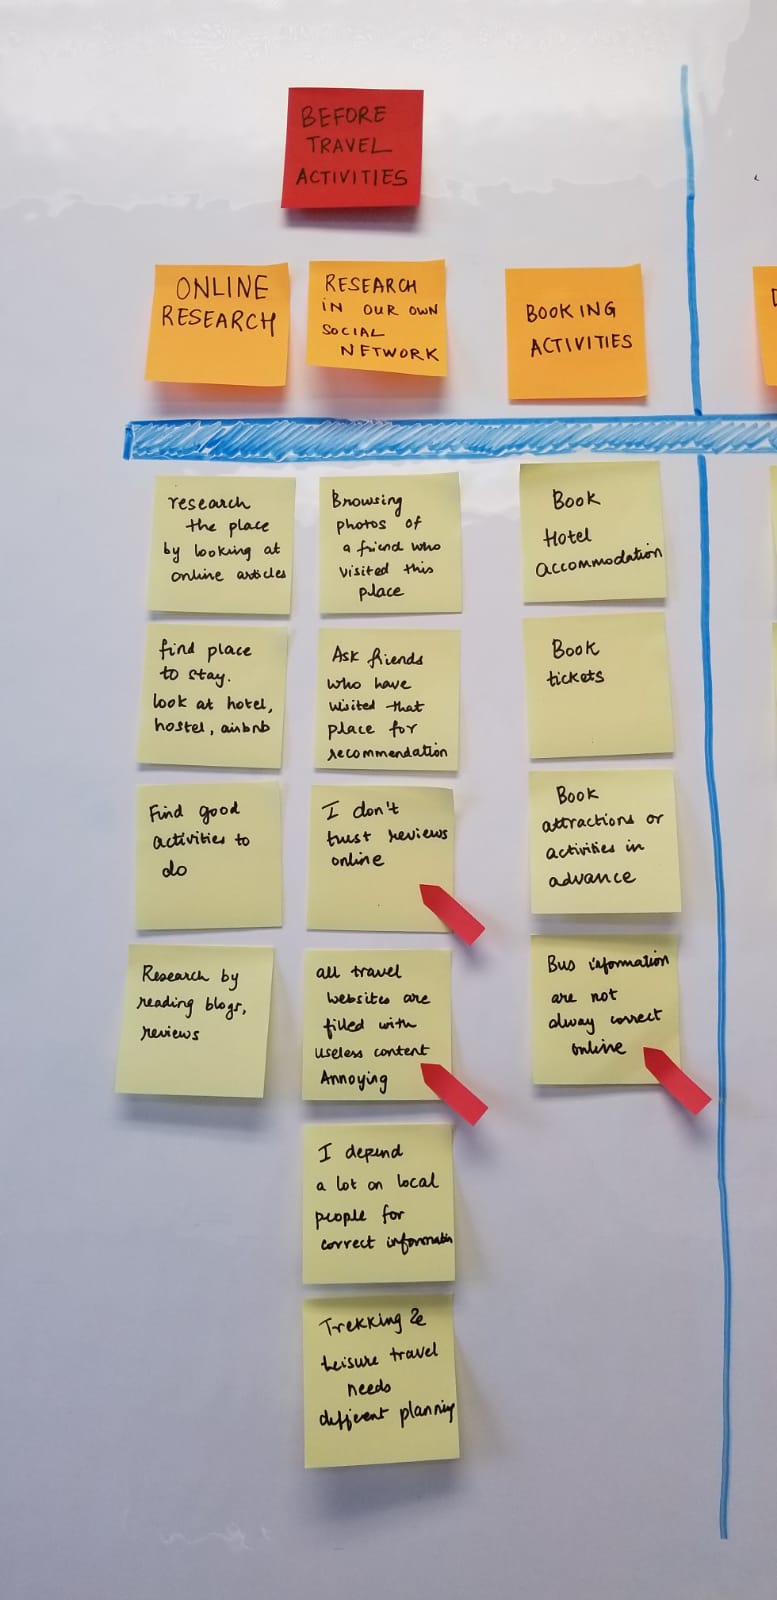 BEFORE
TRAVEL
ACTIVITIES
ONLINE
RESEARCH
RESEARCH
IN OUR OWN
SOCIAL
NETWORK
BOOKING
ACTIVITIES
research
the place
by looking at
online articles
find place
to stay.
look at hotel,
hostel, airbnb
Find good
activities to
do
Research by
reading blogs,
reviews
Browsing
photos of
a friend who
visited this
place
Ask friends
who have
visited that
place for
recommendation
I don't
trust reviews
online
all travel
websites are
filled with
useless content
Annoying
I depend
a lot on local
people for
correct information
Trekking &
Leisure travel
needs
different planning
Book
Hotel
accommodation
Book
tickets
Book
attractions or
activities in
advance
Bus information
are not
alway correct
online